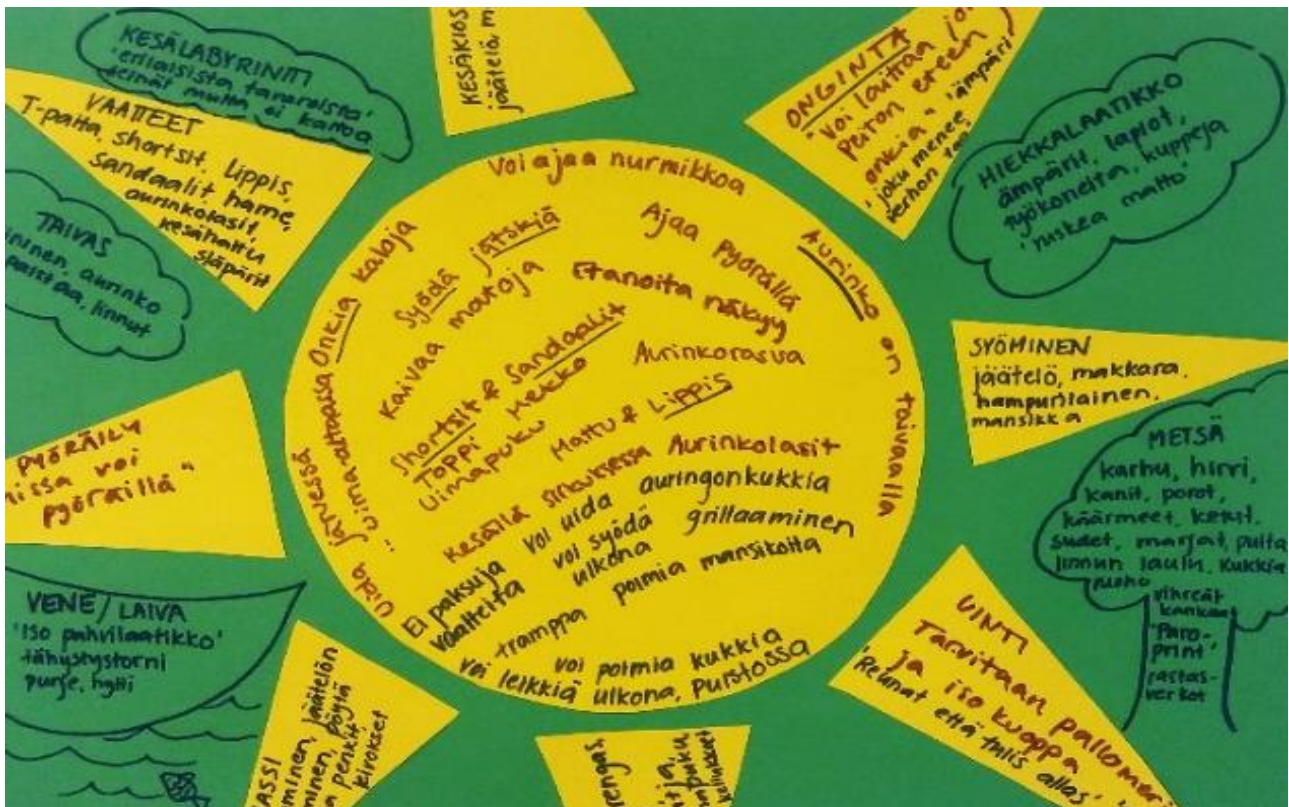 KESÄLABYRINTTI
'erilaisista tavaroista'
'seinät mutta ei kattoa
VAATTEET
T-paita, shortsit, lippis,
sandaalit, hame,
aurinkolasit,
kesähattu
släpärit
TAIVAS
ninen, aurinko
paistaa, linnut
PYÖRÄILY
missa voi
pyöräillä"
VENE/LAIVA
'Iso pahvilaatikko'
tähystystorni
purje, hytti
KESÄKIOS
jäätelö, m
ONGINTA
"voi laittaa jo
puron eteen
onkia" 'ämpäri'
'joku menee
verhon taa'
HIEKKALAATIKKO
ämpärit, lapiot,
työkoneita, kuppeja
'ruskea matto'
SYÖMINEN
jäätelö, makkara,
hampurilainen,
mansikka
METSÄ
karhu, hirvi,
kanit, porot,
käärmeet, ketut,
sudet, marjat, puita
linnun laulu, kukkia
ruoho
vihreät
kankaa
'Paro-
print'
rastas-
verkot
UINTI
Tarvitaan pallomeri
ja iso kuoppa
'Reunat että tulis allas'
Voi ajaa nurmikkoa
Aurinko on taivaalla
Uida järvessä
uimarannalla
Onkia kaloja
Syödä jätskiä
Kaivaa matoja
Ajaa pyörällä
Etanoita näkyy
Shortsit & Sandaalit
Toppi Mekko
Uimapuku
Aurinkorasva
Hattu & Lippis
Aurinkolasit
Kesällä
auringonkukkia
Ei paksuja
vaatteita
voi uida
voi syödä
ulkona
grillaaminen
poimia mansikoita
tramppa
voi poimia kukkia
voi leikkiä ulkona, puistossa
ASSI
minen, jäätelön
minen, pöytä
a penkit
kirokset
rengas,